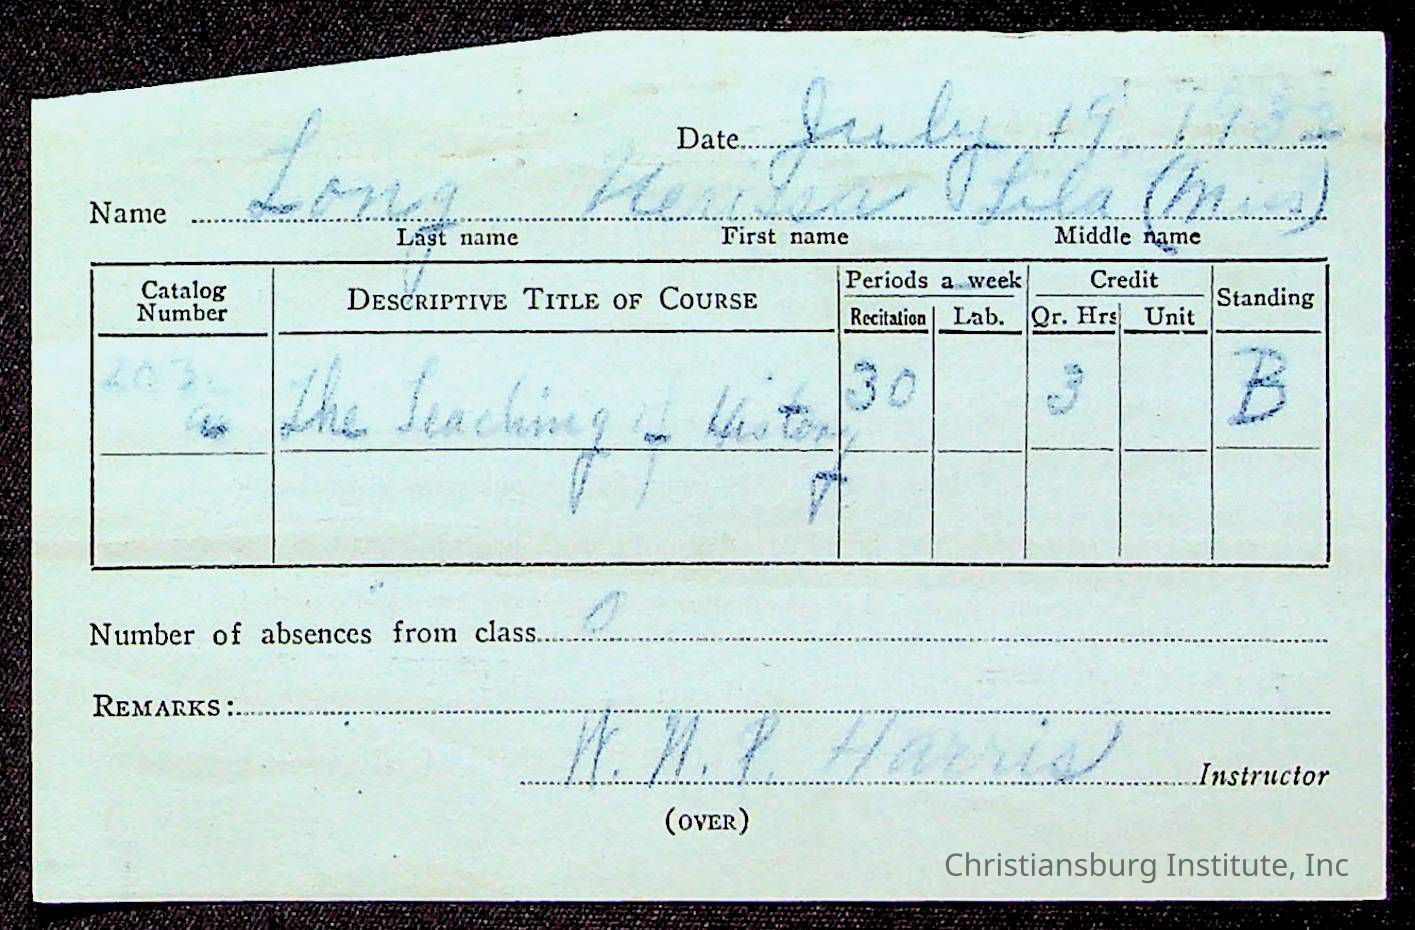 Date July 19, 1932
Name Long Lila (Miss)
Last name First name Middle name
Catalog Number DESCRIPTIVE TITLE OF COURSE Periods a week Credit Standing
Recitation Lab. Qr. Hrs Unit
203 The Teaching of History 30 3 B
Number of absences from class 0
REMARKS:
W. H. P. Harris Instructor
(OVER)
Christiansburg Institute, Inc